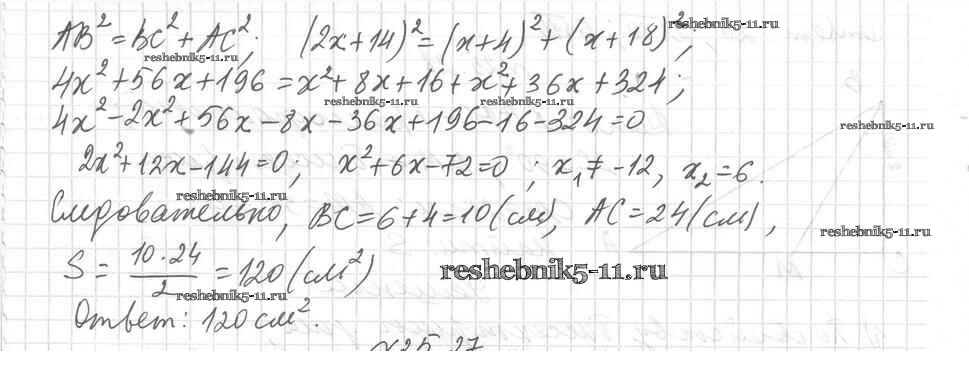 AB² = BC² + AC²; (2x+14)² = (x+4)² + (x+18)²; reshebnik5-11.ru
reshebnik5-11.ru
4x² + 56x + 196 = x² + 8x + 16 + x² + 36x + 324;
reshebnik5-11.ru reshebnik5-11.ru
4x² - 2x² + 56x - 8x - 36x + 196 - 16 - 324 = 0
reshebnik5-11.ru
2x² + 12x - 144 = 0; x² + 6x - 72 = 0; x₁ ≠ -12, x₂ = 6.
reshebnik5-11.ru
Следовательно, BC = 6 + 4 = 10 (см), AC = 24 (см),
reshebnik5-11.ru
S = 10·24/2 = 120 (см²)
reshebnik5-11.ru
reshebnik5-11.ru
Ответ: 120 см².